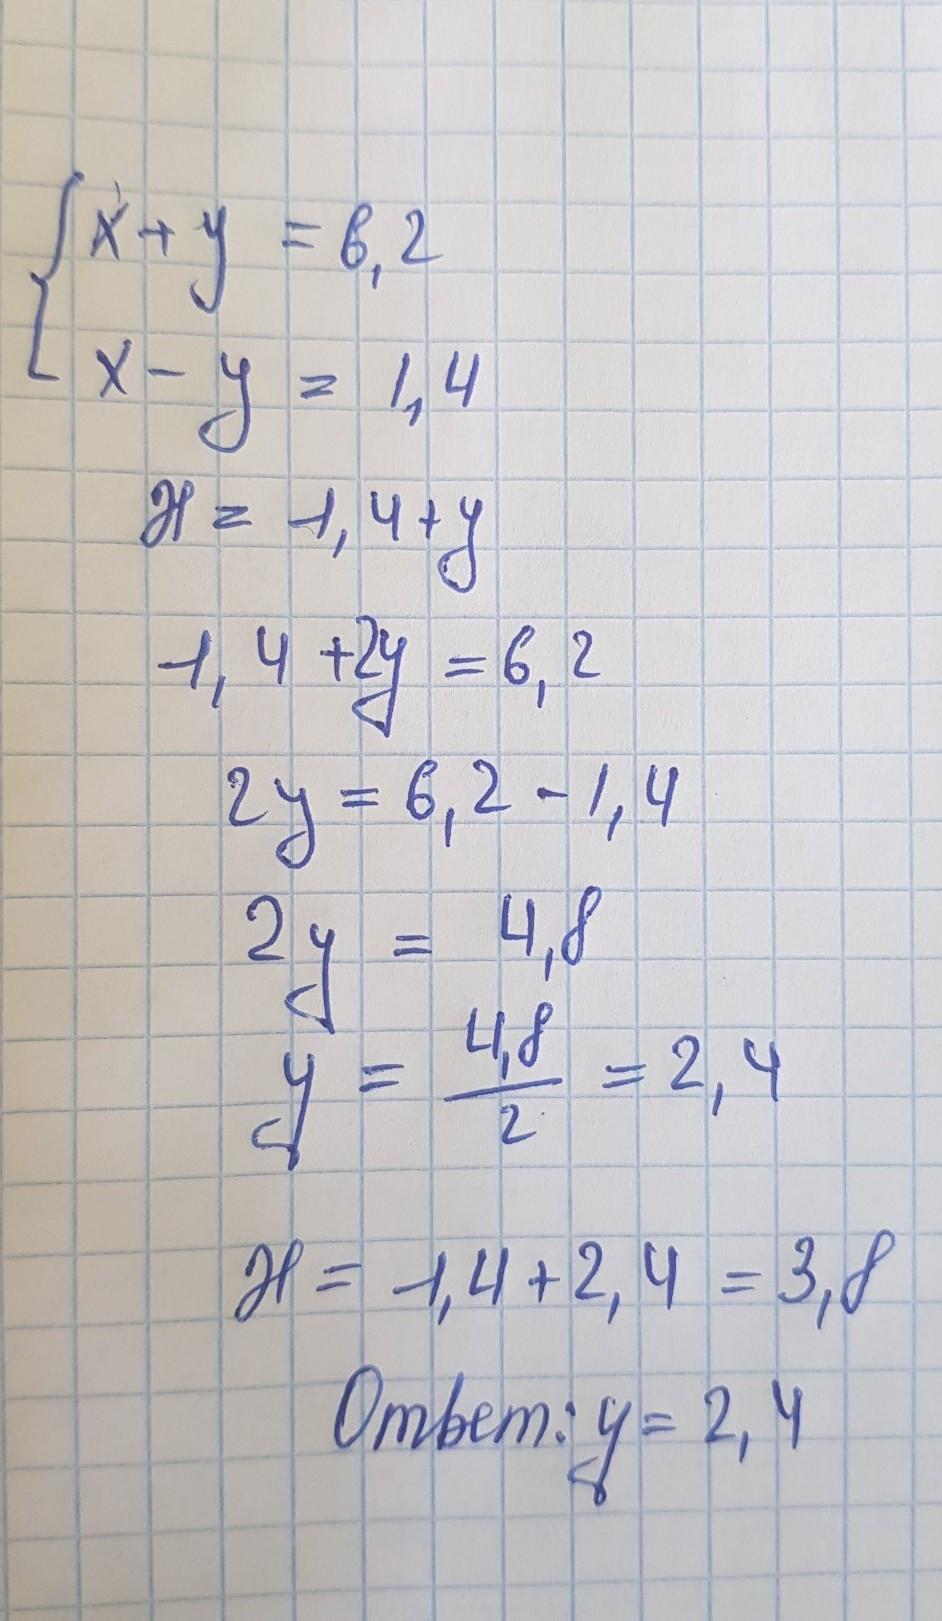 { x + y = 6,2
x - y = 1,4
x = 1,4 + y
1,4 + 2y = 6,2
2y = 6,2 - 1,4
2y = 4,8
y = 4,8/2 = 2,4
x = 1,4 + 2,4 = 3,8
Ответ: y = 2,4